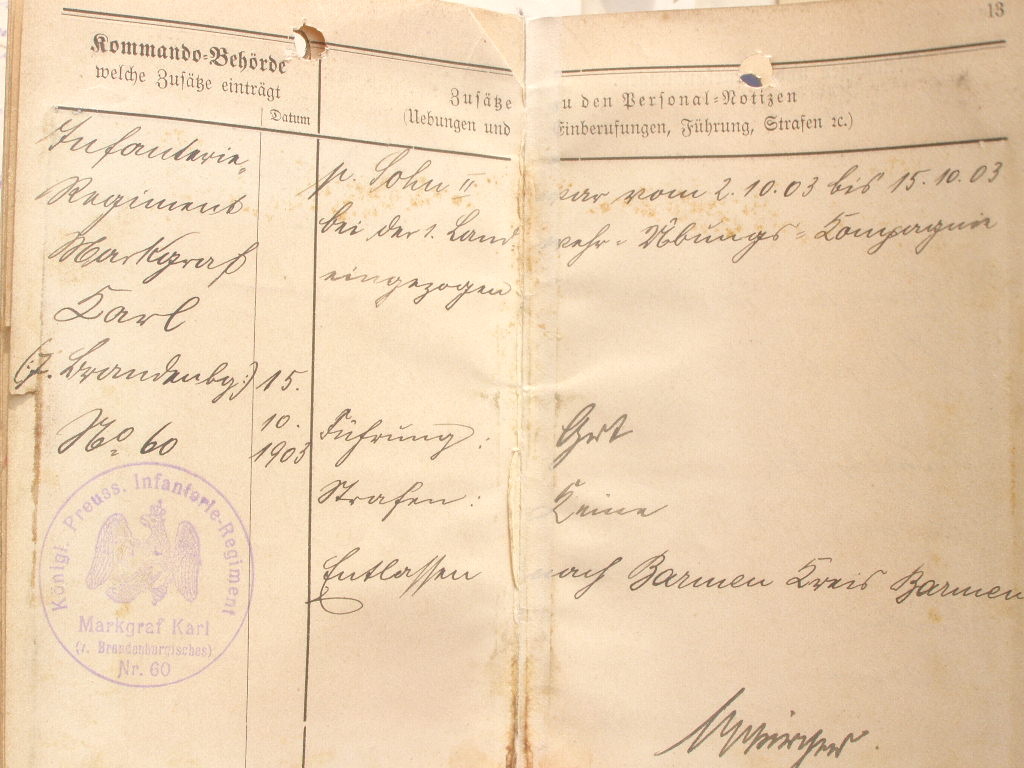 13
Kommando-Behörde
welche Zusätze einträgt
Datum
Zusätze zu den Personal-Notizen
(Uebungen und Einberufungen, Führung, Strafen ꝛc.)
Infanterie-
Regiment
Markgraf
Karl
(7. Brandenbg.)
No 60
15.
10.
1903
p. Sohn II war vom 2.10.03 bis 15.10.03
bei der 1. Landwehr-Übungs-Kompagnie
eingezogen
Führung: Gut
Strafen: Keine
Entlassen nach Barmen Kreis Barmen
Königl. Preuss. Infanterie-Regiment
Markgraf Karl
(7. Brandenburgisches)
Nr. 60